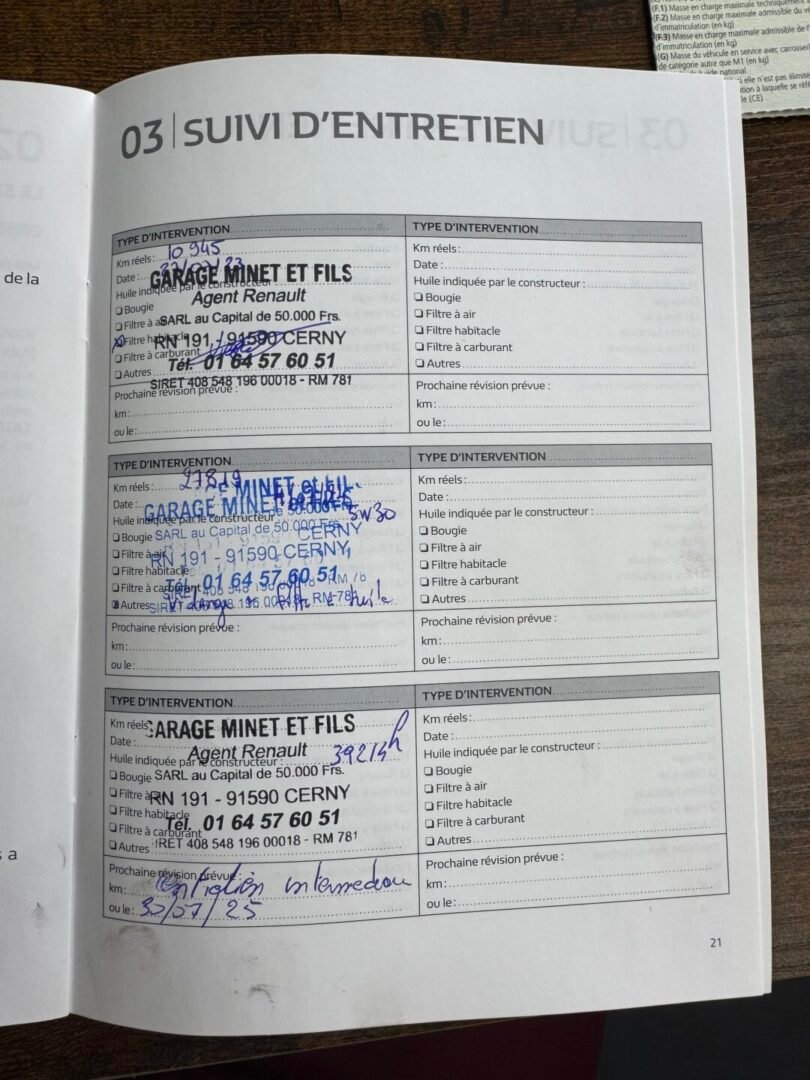 (F.1) Masse en charge maximale techniquement
(F.2) Masse en charge maximale admissible du
d'immatriculation (en kg)
(F.3) Masse en charge maximale admissible de
d'immatriculation (en kg)
(G) Masse du véhicule en service avec
de catégorie autre que M1 (en kg)
national
elle n'est pas
à laquelle se
le (CE)
de la
s a
03 | SUIVI D'ENTRETIEN
TYPE D'INTERVENTION
Km réels : 10 945
Date :
GARAGE MINET ET FILS
Huile indiquée par le constructeur
Agent Renault
❏ Bougie
SARL au Capital de 50.000 Frs.
❏ Filtre à air
RN 191, - 91590 CERNY
Filtre habitacle
❏ Filtre à carburant
Tél. 01 64 57 60 51
❏ Autres
SIRET 408 548 196 00018 - RM 781
Prochaine révision prévue :
km :
ou le :
TYPE D'INTERVENTION
Km réels :
Date :
Huile indiquée par le constructeur :
❏ Bougie
❏ Filtre à air
❏ Filtre habitacle
❏ Filtre à carburant
❏ Autres
Prochaine révision prévue :
km :
ou le :
TYPE D'INTERVENTION
Km réels :
Date :
GARAGE MINET
Huile indiquée par le constructeur : 5W30
❏ Bougie
SARL au Capital de 50.000 Frs.
❏ Filtre à air
RN 191 - 91590 CERNY
❏ Filtre habitacle
Tél. 01 64 57 60 51
❏ Filtre à carburant
Autres
Prochaine révision prévue :
km :
ou le :
TYPE D'INTERVENTION
Km réels :
Date :
Huile indiquée par le constructeur :
❏ Bougie
❏ Filtre à air
❏ Filtre habitacle
❏ Filtre à carburant
❏ Autres
Prochaine révision prévue :
km :
ou le :
TYPE D'INTERVENTION
Km réels
GARAGE MINET ET FILS
Date :
Agent Renault
Huile indiquée par le constructeur :
❏ Bougie
SARL au Capital de 50.000 Frs.
❏ Filtre à
RN 191 - 91590 CERNY
❏ Filtre habitacle
Tél. 01 64 57 60 51
❏ Filtre à carburant
❏ Autres
IRET 408 548 196 00018 - RM 781
Prochaine révision prévue :
km :
ou le : 30/07/25
TYPE D'INTERVENTION
Km réels :
Date :
Huile indiquée par le constructeur :
❏ Bougie
❏ Filtre à air
❏ Filtre habitacle
❏ Filtre à carburant
❏ Autres
Prochaine révision prévue :
km :
ou le :
21